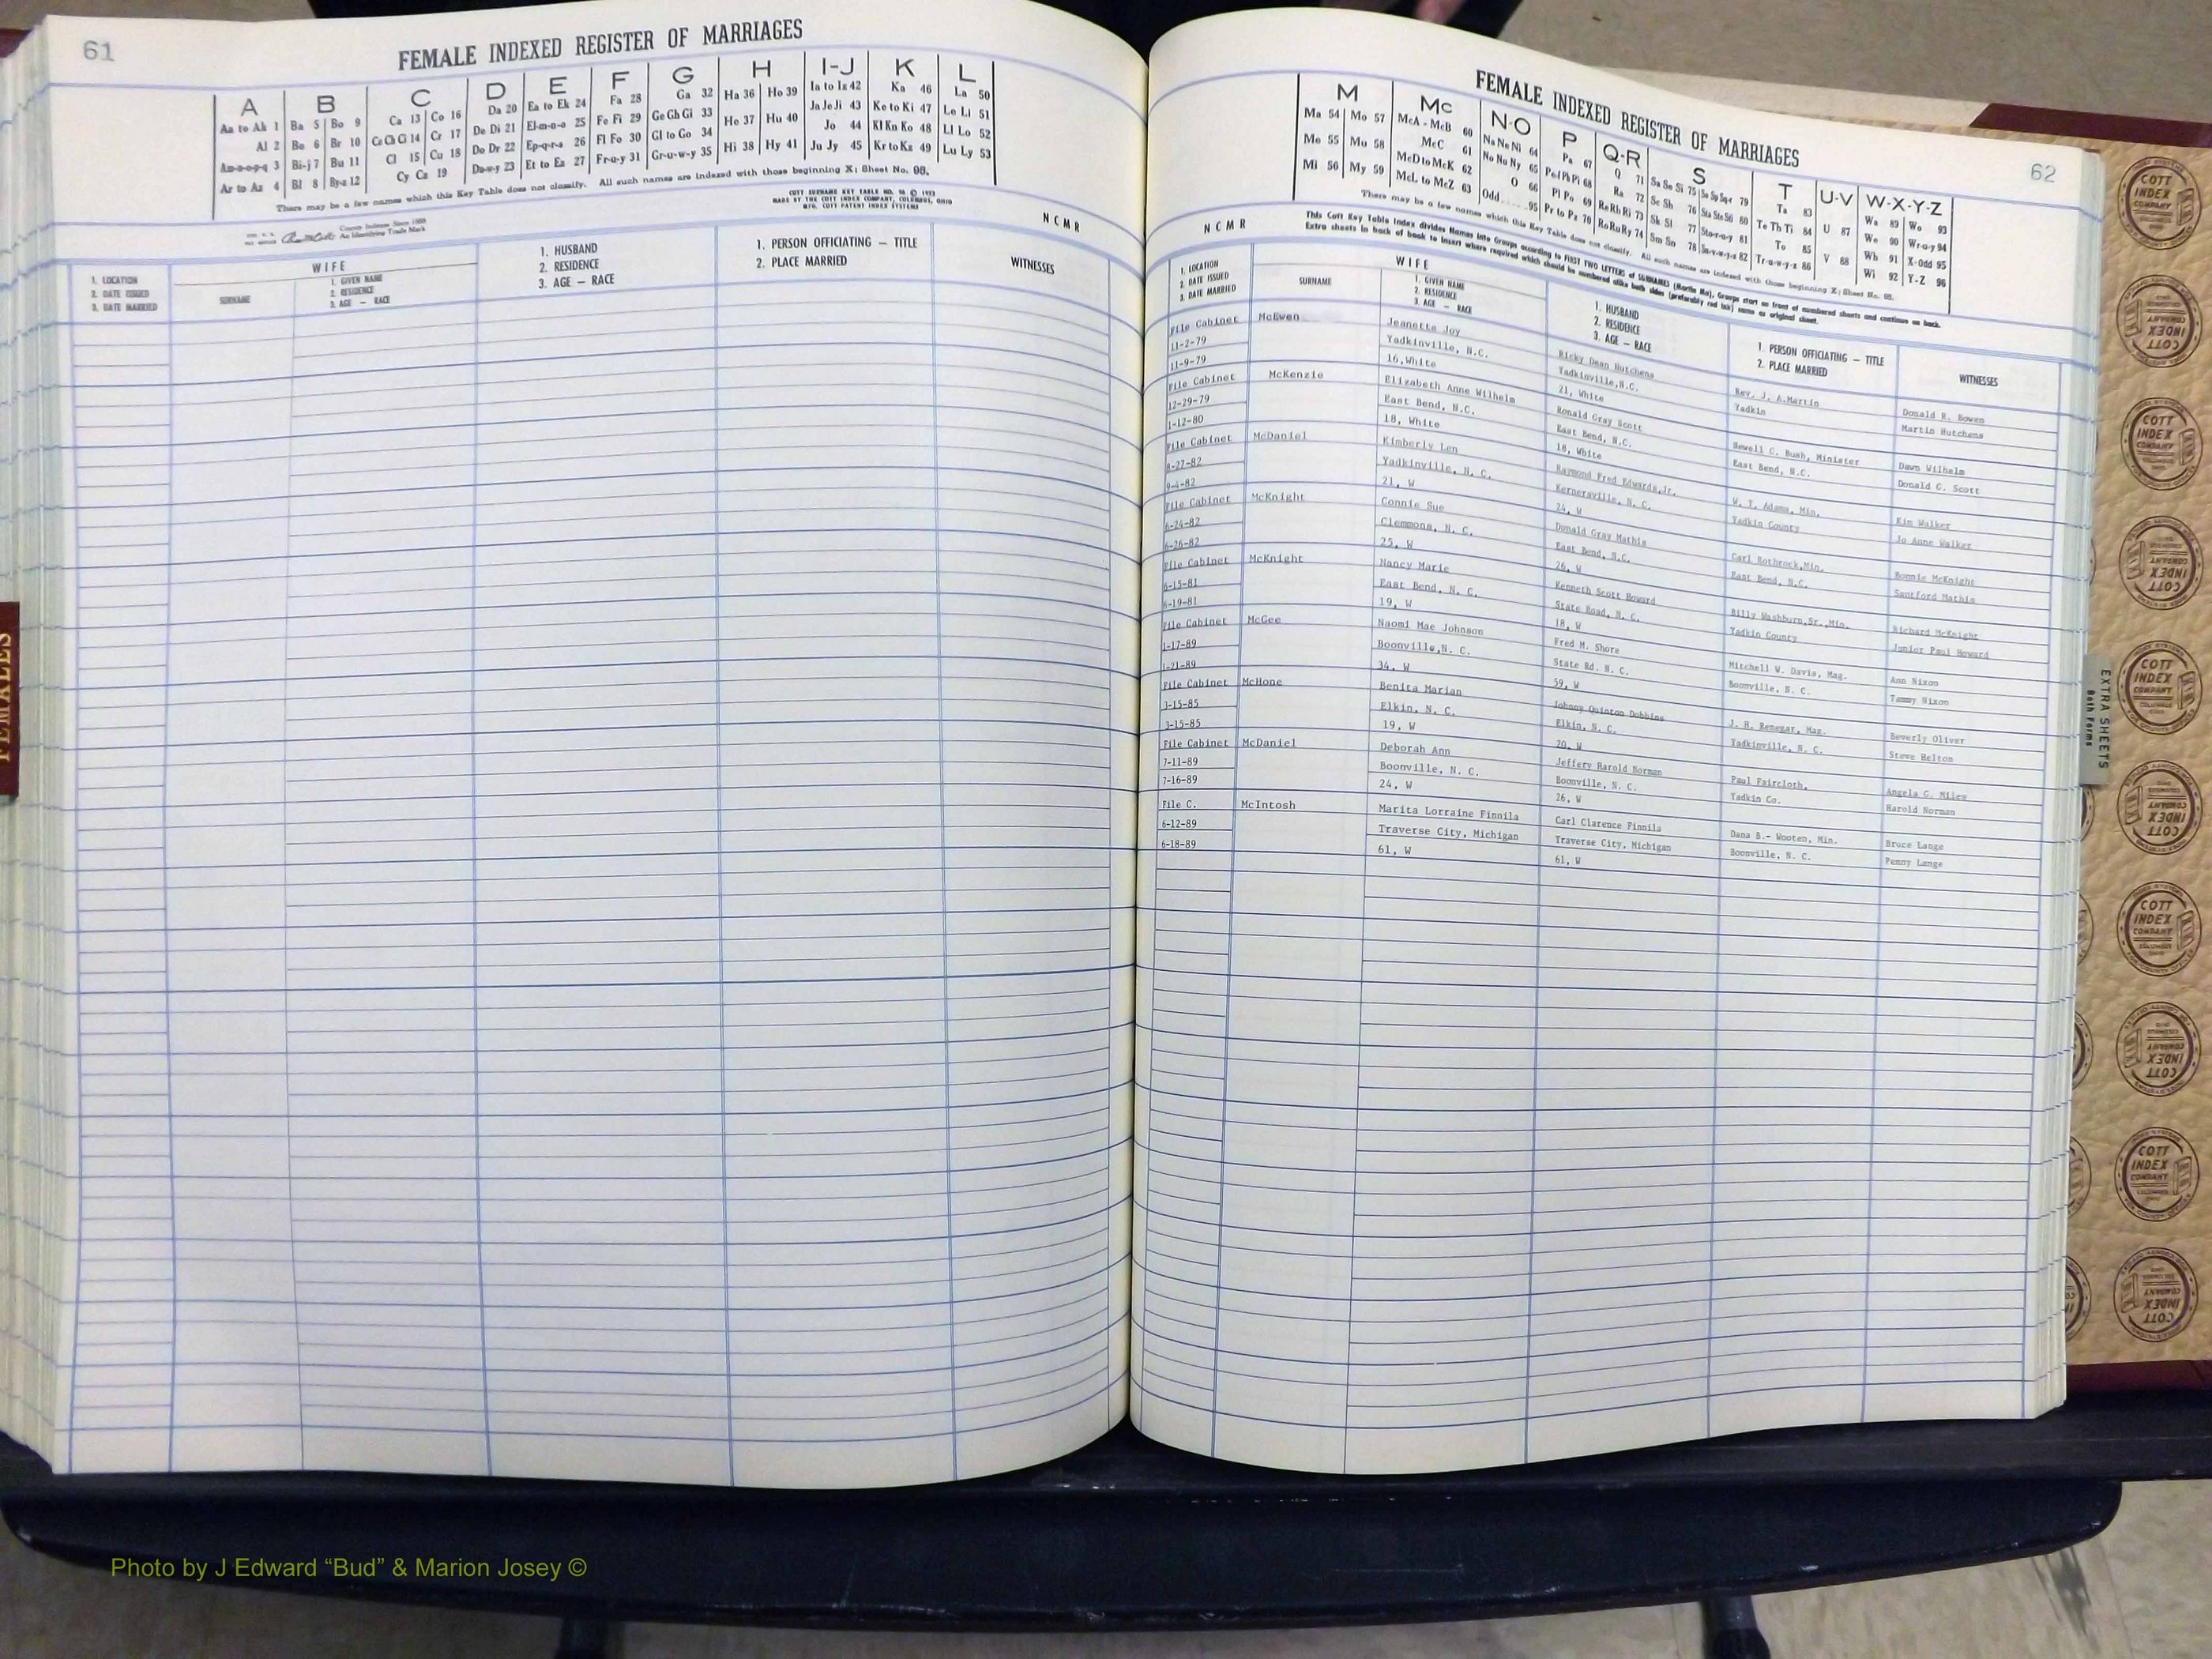 61
FEMALE INDEXED REGISTER OF MARRIAGES
A B C D E F G H I-J K L
Aa to Ak 1 Ba 5 Bo 9 Ca 13 Co 16 Da 20 Ea to Ek 24 Fa 28 Ga 32 Ha 36 Ho 39 Ia to Iz 42 Ka 46 La 50
Al 2 Be 6 Br 10 Ce Ch Ci 14 Cr 17 De Di 21 El-m-n-o 25 Fe Fi 29 Ge Gh Gi 33 He 37 Hu 40 Ja Je Ji 43 Ke to Ki 47 Le Li 51
Am-n-o-p-q 3 Bi-j 7 Bu 11 Cl 15 Cu 18 Do Dr 22 Ep-q-r-s 26 Fl Fo 30 Gl to Go 34 Hi 38 Hy 41 Jo 44 Kl Kn Ko 48 Ll Lo 52
Ar to Az 4 Bl 8 By-z 12 Cy Cz 19 Du-w-y 23 Et to Ez 27 Fr-u-y 31 Gr-u-w-y 35 Ju Jy 45 Kr to Kz 49 Lu Ly 53
There may be a few names which this Key Table does not classify. All such names are indexed with those beginning X; Sheet No. 98.
COTT SURNAME KEY TABLE NO. 96 © 1953
MADE BY THE COTT INDEX COMPANY, COLUMBUS, OHIO
MFG. COTT PATENT INDEX SYSTEMS
County Indexes Since 1888
An Identifying Trade Mark
N C M R
1. LOCATION
2. DATE ISSUED
3. DATE MARRIED
WIFE
SURNAME
1. GIVEN NAME
2. RESIDENCE
3. AGE — RACE
1. HUSBAND
2. RESIDENCE
3. AGE — RACE
1. PERSON OFFICIATING — TITLE
2. PLACE MARRIED
WITNESSES
FEMALES
62
FEMALE INDEXED REGISTER OF MARRIAGES
M Mc N-O P Q-R S T U-V W-X-Y-Z
Ma 54 Mo 57 McA - McB 60 Na Ne Ni 64 Pa 67 Q 71 Sa Se Si 75 79 Ta 83 Wa 89 Wo 93
Me 55 Mu 58 McC 61 No Nu Ny 65 Pe Ph Pi 68 Ra 72 Sc Sh 76 Sta Ste Sti 80 Te Th Ti 84 U 87 We 90 Wr-u-y 94
Mi 56 My 59 McD to McK 62 O 66 Pl Po 69 Re Rh Ri 73 Sk Sl 77 Sto-r-u-y 81 To 85 Wh 91 X-Odd 95
McL to McZ 63 Odd ..... 95 Pr to Pz 70 Ro Ru Ry 74 Sm Sn 78 Su-v-w-y-z 82 Tr-u-w-y-z 86 V 88 Wi 92 Y-Z 96
There may be a few names which this Key Table does not classify. All such names are indexed with those beginning X; Sheet No. 98.
This Cott Key Table Index divides Names into Groups according to FIRST TWO LETTERS of SURNAMES (Martin Ma), Groups start on front of numbered sheets and continue on back.
Extra sheets in back of book to insert where required which should be numbered alike both sides (preferably red ink) same as original sheet.
N C M R
1. LOCATION
2. DATE ISSUED
3. DATE MARRIED
WIFE
SURNAME
1. GIVEN NAME
2. RESIDENCE
3. AGE — RACE
1. HUSBAND
2. RESIDENCE
3. AGE — RACE
1. PERSON OFFICIATING — TITLE
2. PLACE MARRIED
WITNESSES
File Cabinet McEwen Jeanette Joy Ricky Dean Hutchens Rev. J. A.Martin Donald R. Bowen
11-2-79 Yadkinville, N.C. Yadkinville,N.C. Yadkin Martin Hutchens
11-9-79 16,White 21, White
File Cabinet McKenzie Elizabeth Anne Wilhelm Ronald Gray Scott Sewell C. Bush, Minister Dawn Wilhelm
12-29-79 East Bend, N.C. East Bend, N.C. East Bend, N.C. Donald C. Scott
1-12-80 18, White 18, White
File Cabinet McDaniel Kimberly Len Raymond Fred Edwards,Jr. W. T. Adams, Min. Kim Walker
8-27-82 Yadkinville, N. C. Kernersville, N. C. Yadkin County Jo Anne Walker
9-4-82 21, W 24, W
File Cabinet McKnight Connie Sue Donald Gray Mathis Carl Rothrock,Min. Bonnie McKnight
6-24-82 Clemmons, N. C. East Bend, N.C. East Bend, N.C. Sanford Mathis
6-26-82 25, W 26, W
File Cabinet McKnight Nancy Marie Kenneth Scott Howard Billy Washburn,Sr.,Min. Richard McKnight
6-15-81 East Bend, N. C. State Road, N. C. Yadkin County Junior Paul Howard
6-19-81 19, W 18, W
File Cabinet McGee Naomi Mae Johnson Fred M. Shore Mitchell W. Davis, Mag. Ann Nixon
1-17-89 Boonville,N. C. State Rd. N. C. Boonville, N. C. Tammy Nixon
1-21-89 34, W 59, W
File Cabinet McHone Benita Marian Johnny Quinton Dobbins J. H. Renegar, Mag. Beverly Oliver
3-15-85 Elkin, N. C. Elkin, N. C. Yadkinville, N. C. Steve Belton
3-15-85 19, W 20, W
File Cabinet McDaniel Deborah Ann Jeffery Harold Norman Paul Faircloth, Angela G. Miles
7-11-89 Boonville, N. C. Boonville, N. C. Yadkin Co. Harold Norman
7-16-89 24, W 26, W
File C. McIntosh Marita Lorraine Finnila Carl Clarence Finnila Dana B.- Wooten, Min. Bruce Lange
6-12-89 Traverse City, Michigan Traverse City, Michigan Boonville, N. C. Penny Lange
6-18-89 61, W 61, W
EXTRA SHEETS
Both Forms
COTT
INDEX
COMPANY
Photo by J Edward “Bud” & Marion Josey ©